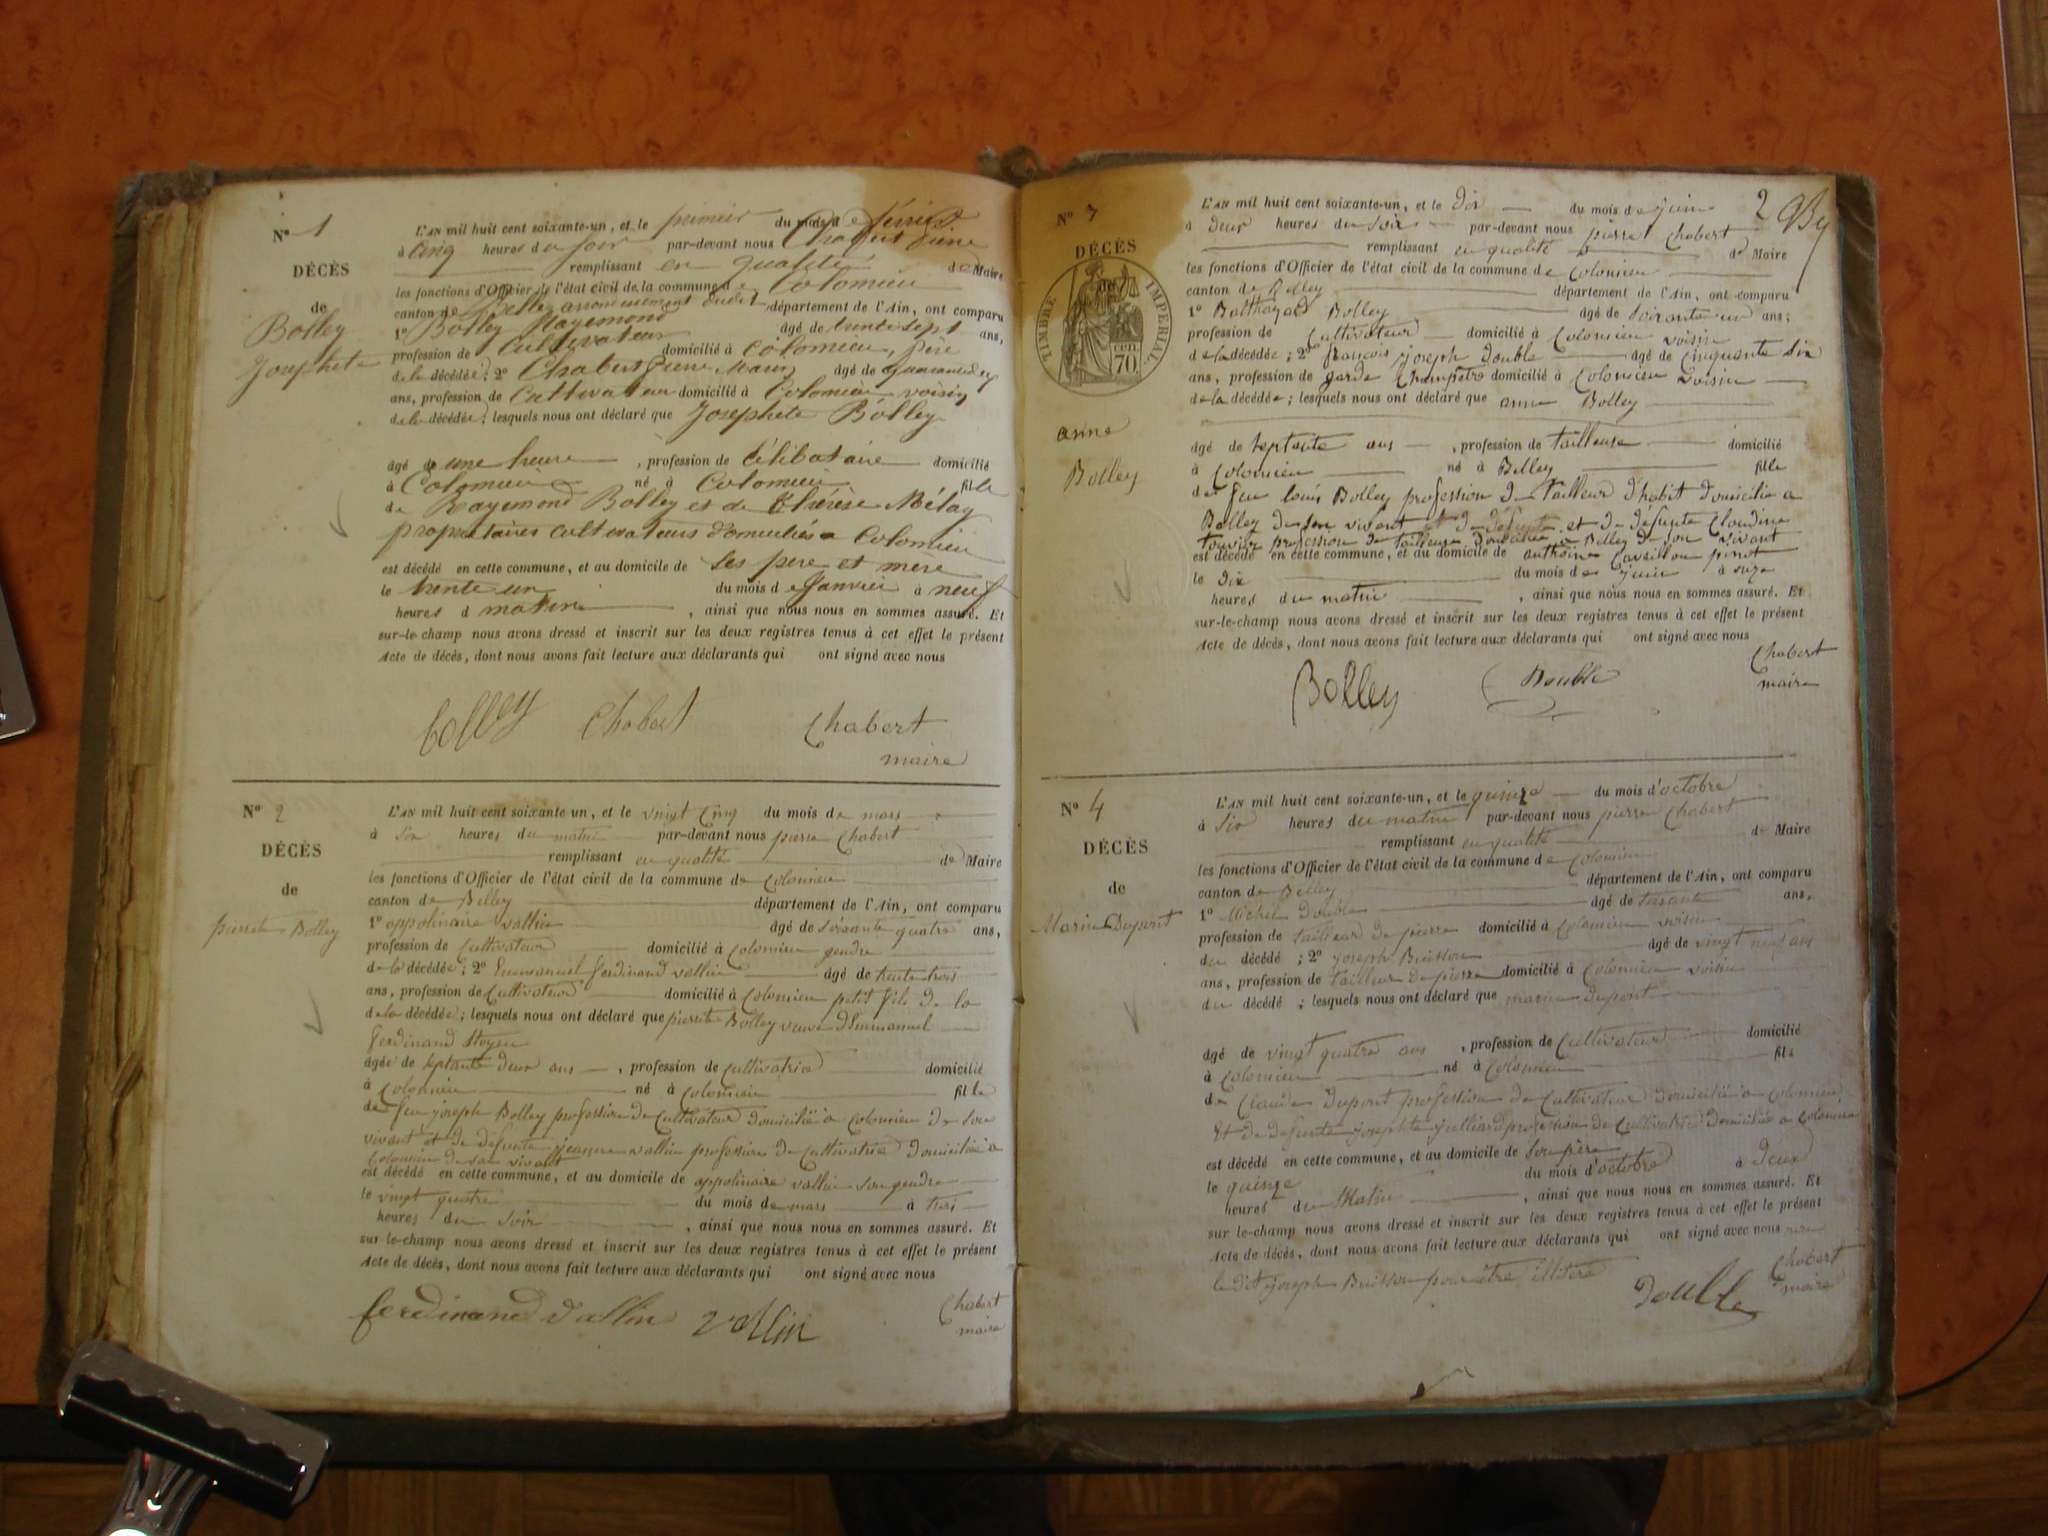 N° 1
DÉCÈS
de
Bolley
Josephete
L'AN mil huit cent soixante-un, et le premier du mois de février
à cinq heures du soir par-devant nous Chabert pierre
remplissant en qualité de Maire
les fonctions d'Officier de l'état civil de la commune de Colomieu
canton de Belley arrondissement dudit département de l'Ain, ont comparu
1° Bolley Rayemond âgé de trente sept ans,
profession de cultivateur domicilié à Colomieu, père
de la décédée; 2° Chabert pierre Marin âgé de
ans, profession de cultivateur domicilié à Colomieu voisin
de la décédée; lesquels nous ont déclaré que Josephete Bolley
âgé de une heure, profession de célibataire domicilié
à Colomieu né à Colomieu fille
de Rayemond Bolley et de Thérèse Mélay
propriétaires cultivateurs domiciliés a Colomieu
est décédé en cette commune, et au domicile de ses pere et mère
le trente un du mois de Janvier à neuf
heures d matin, ainsi que nous nous en sommes assuré. Et
sur-le-champ nous avons dressé et inscrit sur les deux registres tenus à cet effet le présent
Acte de décès, dont nous avons fait lecture aux déclarants qui ont signé avec nous
bolley Chabert Chabert
maire
N° 2
DÉCÈS
de
pierrete Bolley
L'AN mil huit cent soixante un, et le vingt cinq du mois de mars
à six heures du matin par-devant nous pierre Chabert
remplissant en qualité de Maire
les fonctions d'Officier de l'état civil de la commune de Colomieu
canton de Belley département de l'Ain, ont comparu
1° appolinaire vallin âgé de soixante quatre ans,
profession de cultivateur domicilié à Colomieu gendre
de la décédée; 2° Emmanuel ferdinand vallin âgé de trente trois
ans, profession de cultivateur domicilié à Colomieu petit fils de la
de la décédée; lesquels nous ont déclaré que pierrete Bolley veuve d'Emmanuel
ferdinand
âgée de septante deux ans, profession de cultivatrice domicilié
à Colomieu né à Colomieu fille
de feu joseph Bolley profession de cultivateur domicilié a Colomieu de son
vivant et de defunte jeanne vallin profession de cultivatrice domiciliée a
Colomieu de son vivant
est décédé en cette commune, et au domicile de appolinaire vallin son gendre
le vingt quatre du mois de mars à trois
heures du soir, ainsi que nous nous en sommes assuré. Et
sur-le-champ nous avons dressé et inscrit sur les deux registres tenus à cet effet le présent
Acte de décès, dont nous avons fait lecture aux déclarants qui ont signé avec nous
ferdinand vallin vallin Chabert
maire
2
N° 3
DÉCÈS
de
TIMBRE IMPÉRIAL
70 cen
anne
Bolley
L'AN mil huit cent soixante-un, et le dix du mois de juin
à deux heures du soir par-devant nous pierre Chabert
remplissant en qualité de Maire
les fonctions d'Officier de l'état civil de la commune de Colomieu
canton de Belley département de l'Ain, ont comparu
1° Balthazard Bolley âgé de soixante un ans;
profession de cultivateur domicilié à Colomieu voisin
de la décédée; 2° françois joseph Double âgé de cinquante six
ans, profession de garde champêtre domicilié à Colomieu voisin
de la décédée; lesquels nous ont déclaré que anne Bolley
âgé de septente ans, profession de tailleuse domicilié
à Colomieu né à Belley fille
de feu louis Bolley profession de tailleur d'habit domicilié a
Belley de son vivant et de défunte et de défunte Claudine
profession de tailleuse domiciliée a Belley de son vivant
est décédé en cette commune, et au domicile de anthoine
le dix du mois de juin à onze
heures du matin, ainsi que nous nous en sommes assuré. Et
sur-le-champ nous avons dressé et inscrit sur les deux registres tenus à cet effet le présent
Acte de décès, dont nous avons fait lecture aux déclarants qui ont signé avec nous
Bolley Double Chabert
maire
N° 4
DÉCÈS
de
Marin Dupont
L'AN mil huit cent soixante-un, et le quinze du mois d'octobre
à six heures du matin par-devant nous pierre Chabert
remplissant en qualité de Maire
les fonctions d'Officier de l'état civil de la commune de Colomieu
canton de Belley département de l'Ain, ont comparu
1° Michel Double âgé de soixante ans,
profession de tailleur de pierre domicilié à Colomieu voisin
du décédé; 2° joseph Buisson âgé de vingt neuf ans
ans, profession de tailleur de pierre domicilié à Colomieu voisin
du décédé; lesquels nous ont déclaré que marin dupont
âgé de vingt quatre ans, profession de cultivateur domicilié
à Colomieu né à Colomieu fils
de Claude Dupont profession de cultivateur domicilié a Colomieu,
Et de defunte josephte julliard profession de cultivatrice domiciliée a Colomieu
est décédé en cette commune, et au domicile de son père
le quinze du mois d'octobre à deux
heures du matin, ainsi que nous nous en sommes assuré. Et
sur-le-champ nous avons dressé et inscrit sur les deux registres tenus à cet effet le présent
Acte de décès, dont nous avons fait lecture aux déclarants qui ont signé avec nous
le dit joseph Buisson pour être illiteré
Double Chabert
maire